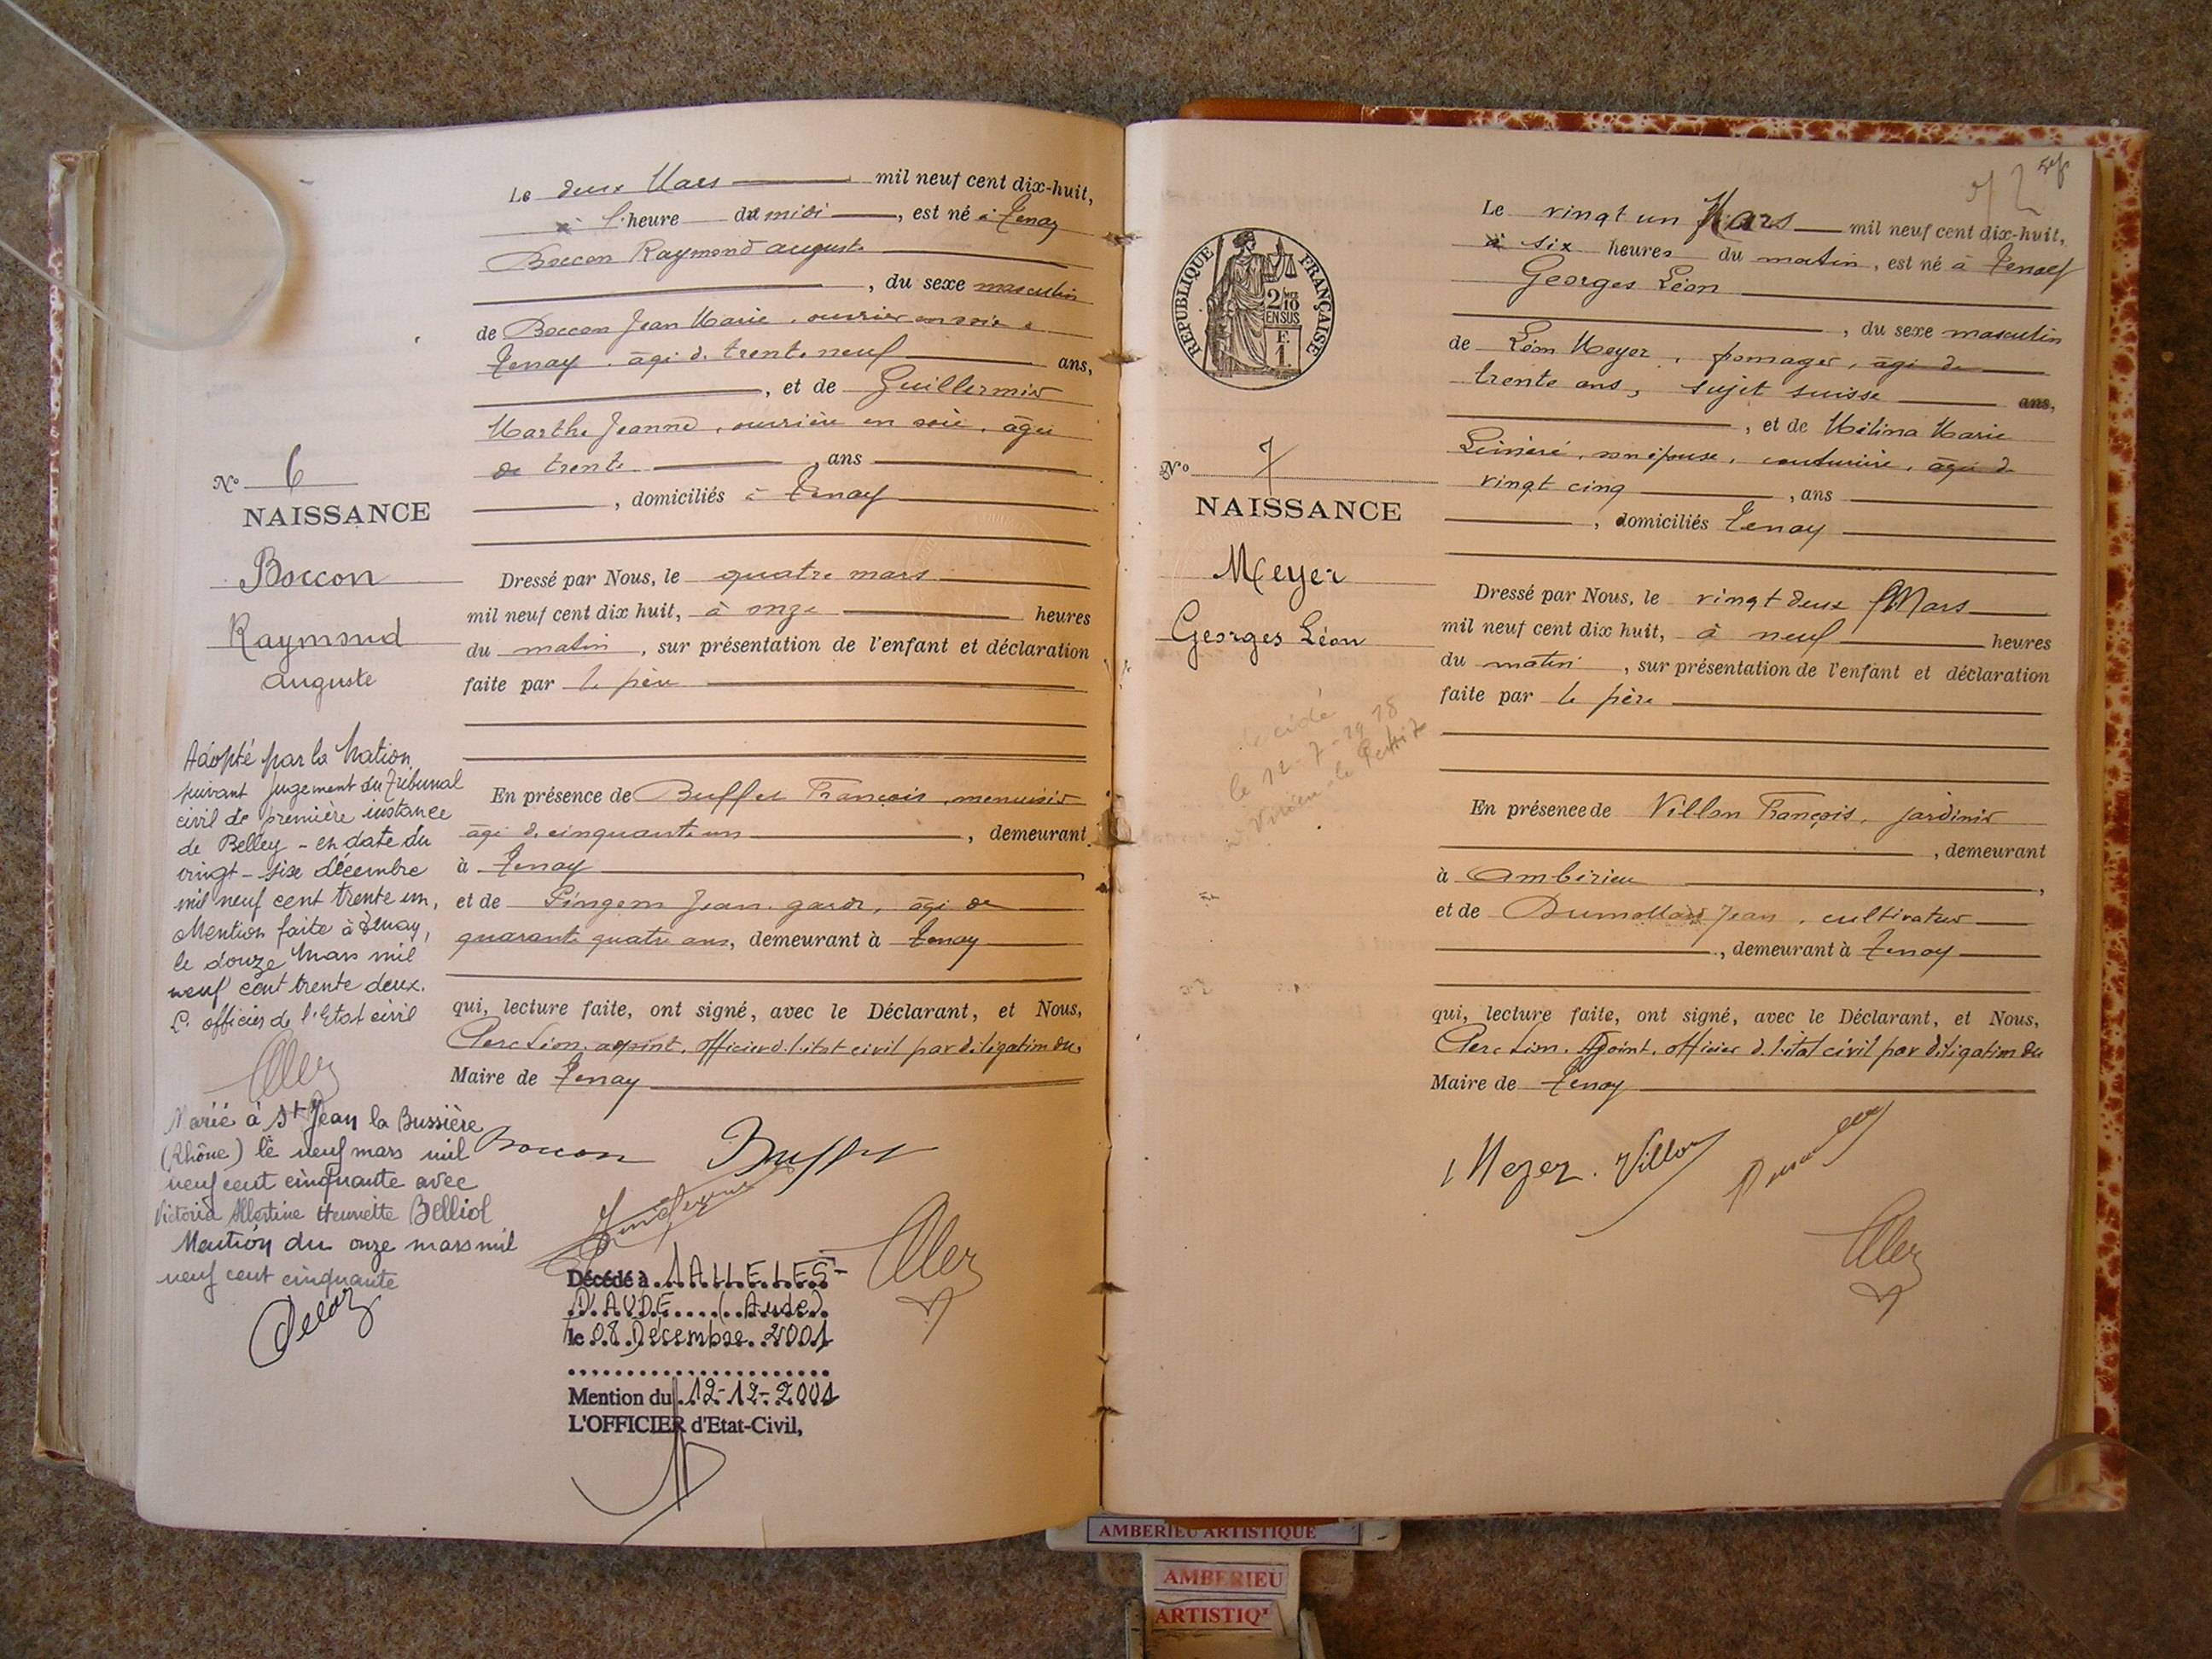 Le deux Mars mil neuf cent dix-huit,
à l'heure du midi, est né à Tenay
Boccon Raymond auguste
, du sexe masculin
de Boccon Jean Marie, ouvrier en soie à
Tenay. âgé de trente neuf ans,
, et de Guillermin
Marthe Jeanne, ouvrière en soie, âgée
de trente, ans
, domiciliés à Tenay
Nº 6
NAISSANCE
Boccon
Raymond
auguste
Dressé par Nous, le quatre mars
mil neuf cent dix huit, à onze heures
du matin, sur présentation de l'enfant et déclaration
faite par le père
En présence de Buffet François, menuisier
âgé de cinquante un, demeurant
à Tenay,
et de Jean. garde, âgé de
quarante quatre ans, demeurant à Tenay
qui, lecture faite, ont signé, avec le Déclarant, et Nous,
Clerc Léon. adjoint. officier de l'état civil par délégation du
Maire de Tenay
Adopté par la Nation
suivant jugement du Tribunal
civil de première instance
de Belley - en date du
vingt-six décembre
mil neuf cent trente un,
Mention faite à Tenay,
le douze Mars mil
neuf cent trente deux.
L'officier de l'Etat civil
Marié à St Jean la Bussière
(Rhône) le neuf mars mil
neuf cent cinquante avec
Victoria Albertine Henriette Belliol
Mention du onze mars mil
neuf cent cinquante
Boccon Buffet
Décédé à SALLELES-
D'AUDE (Aude)
le 08 Décembre 2001
Mention du 12-12-2001
L'OFFICIER d'Etat-Civil,
RÉPUBLIQUE FRANÇAISE
2/10 EN SUS
F.
1.
Le vingt un Mars mil neuf cent dix-huit,
à six heures du matin, est né à Tenay
Georges Léon
, du sexe masculin
de Léon Meyer, fromager, âgé de
trente ans, sujet suisse ans,
, et de Mélina Marie
son épouse, couturière, âgée de
vingt cinq, ans
, domiciliés Tenay
Nº 7
NAISSANCE
Meyer
Georges Léon
Dressé par Nous, le vingt deux Mars
mil neuf cent dix huit, à neuf heures
du matin, sur présentation de l'enfant et déclaration
faite par le père
décédé
le 12-7-1918
Virieu-le-Petit
En présence de Villon François, jardinier
, demeurant
à Ambérieu,
et de Dumollard Jean, cultivateur
, demeurant à Tenay
qui, lecture faite, ont signé, avec le Déclarant, et Nous,
Clerc Léon. Adjoint. officier de l'état civil par délégation du
Maire de Tenay
Meyer. Villon
AMBERIEU ARTISTIQUE
AMBERIEU
ARTISTIQ